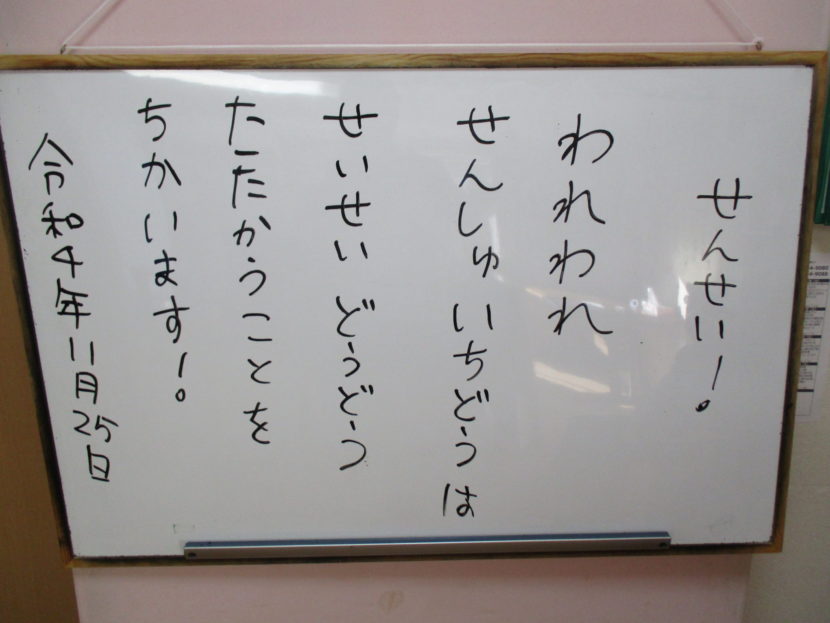 せんせい！
われわれ
せんしゅ いちどうは
せいせい どうどう
たたかうことを
ちかいます！
令和4年11月25日